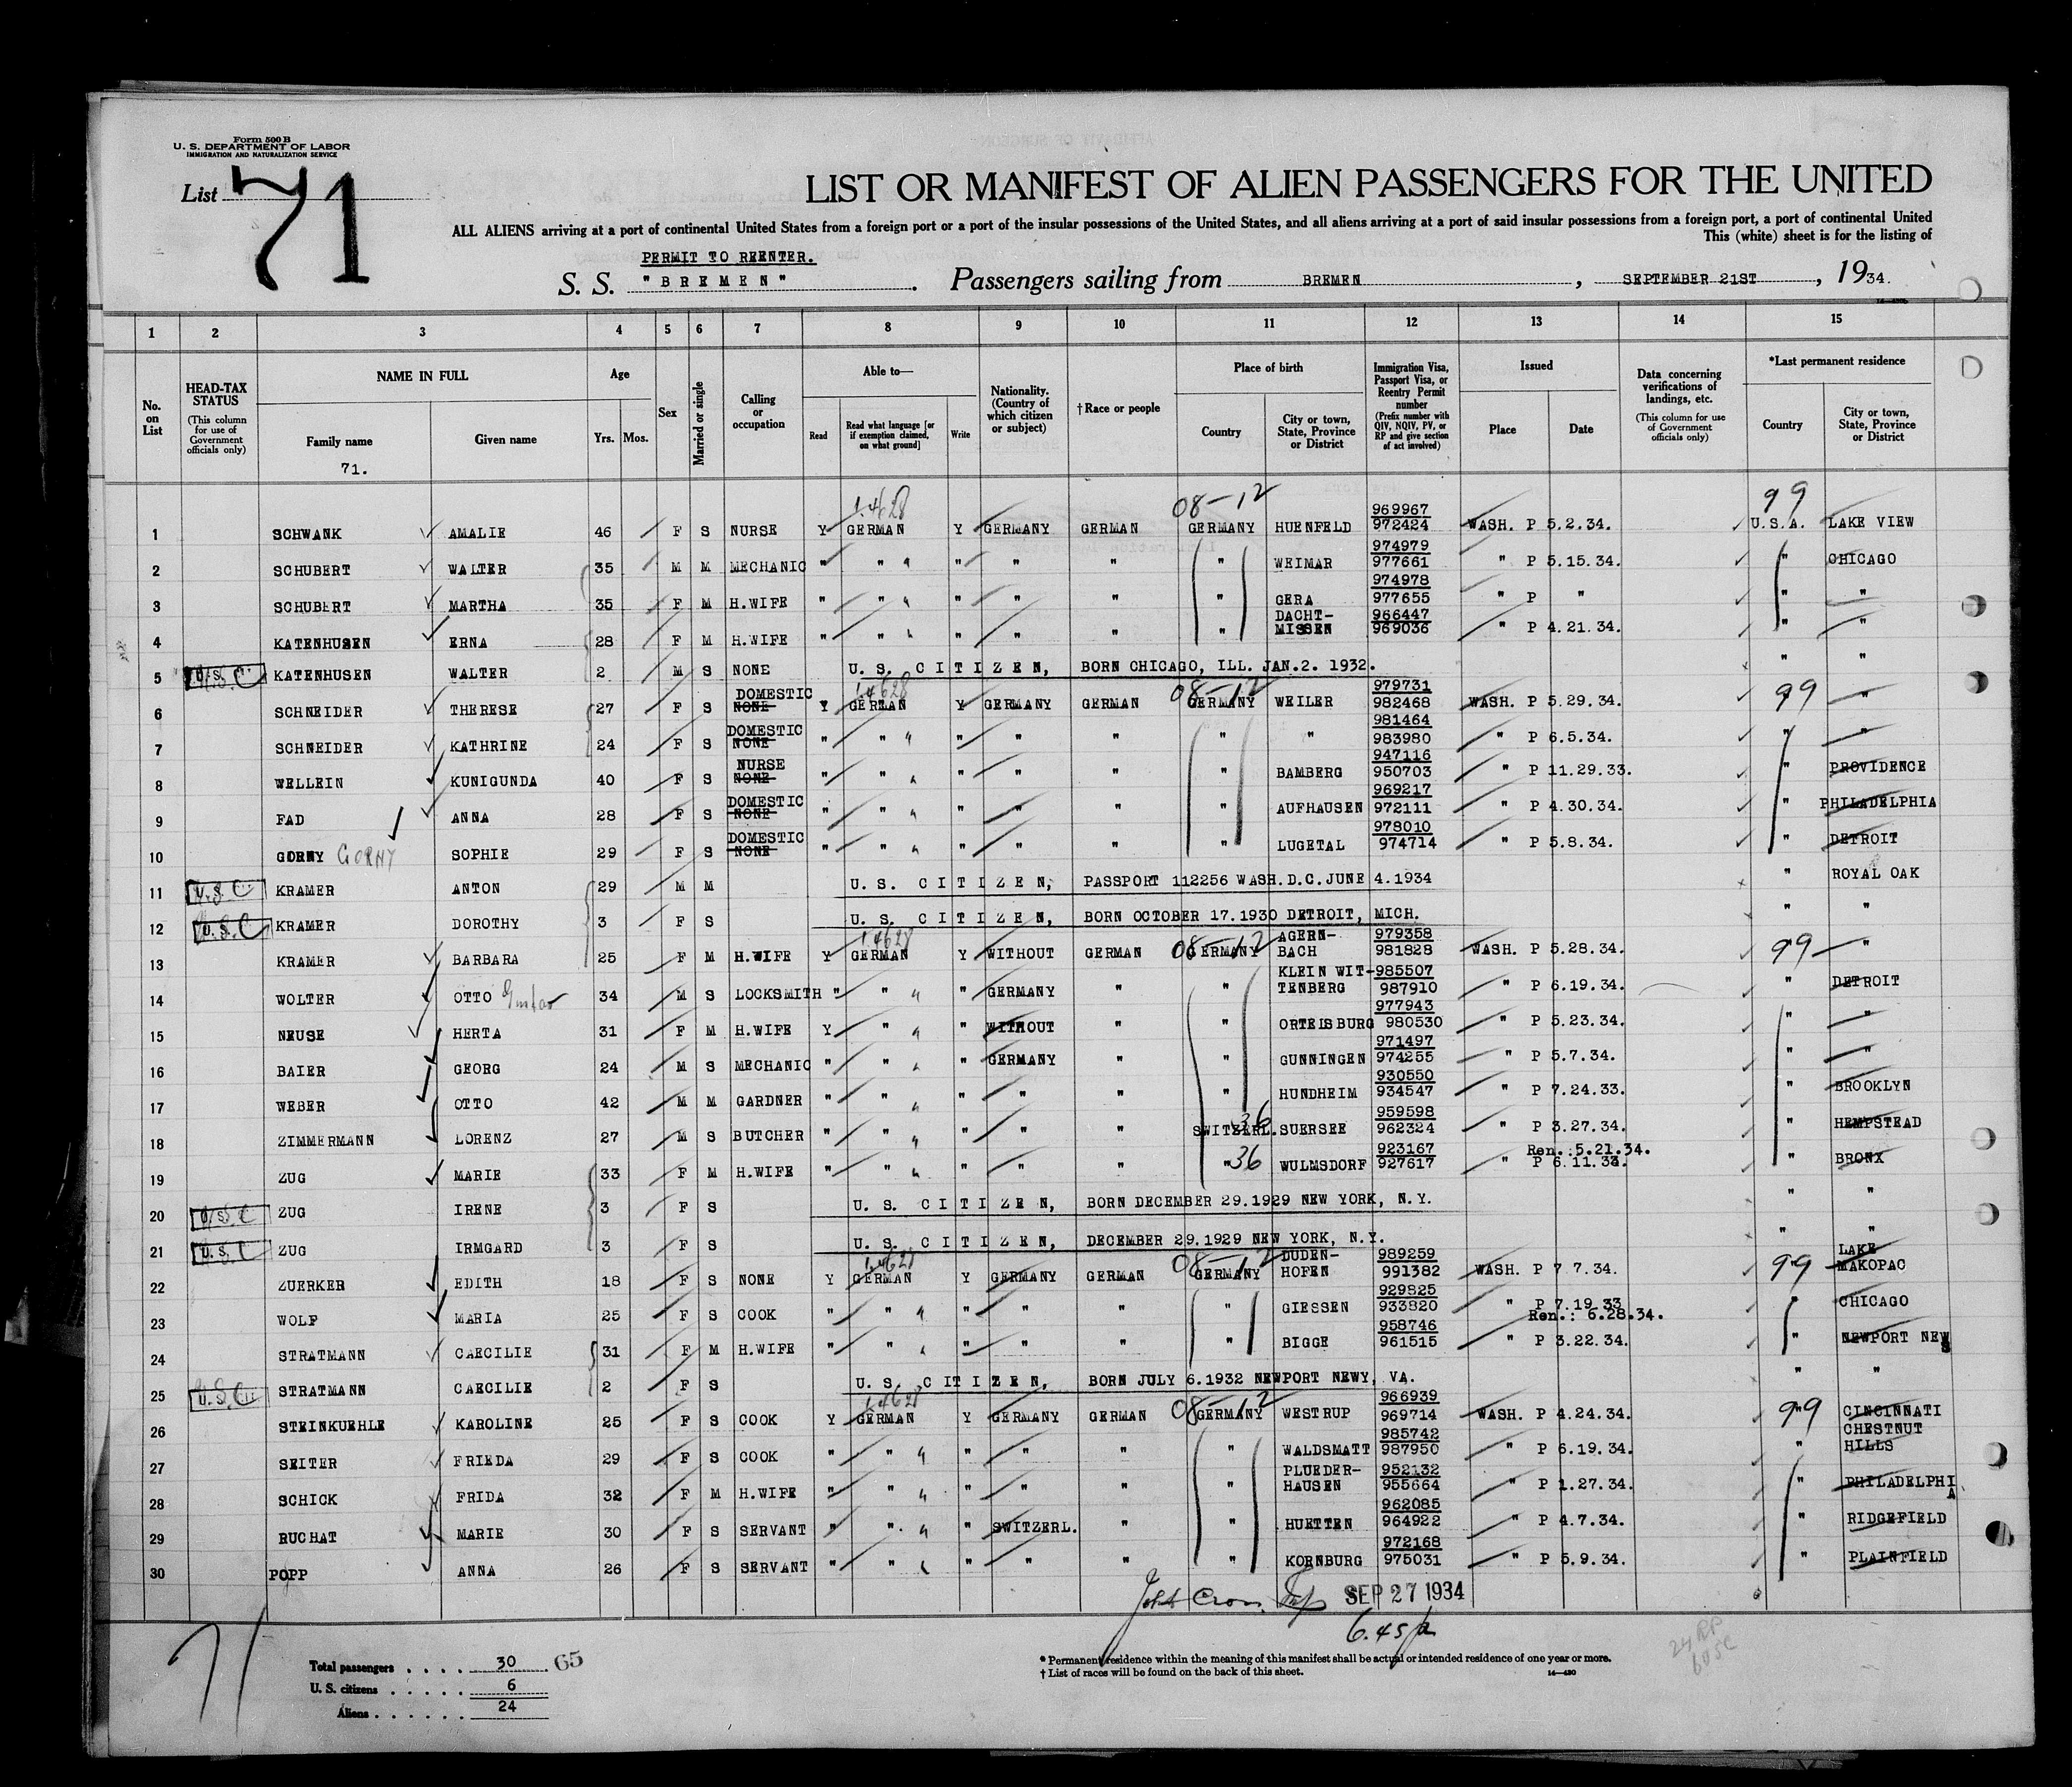 Form 500 B
U. S. DEPARTMENT OF LABOR
IMMIGRATION AND NATURALIZATION SERVICE
List 71
LIST OR MANIFEST OF ALIEN PASSENGERS FOR THE UNITED
ALL ALIENS arriving at a port of continental United States from a foreign port or a port of the insular possessions of the United States, and all aliens arriving at a port of said insular possessions from a foreign port, a port of continental United
This (white) sheet is for the listing of
PERMIT TO REENTER.
S. S. "BREMEN" . Passengers sailing from BREMEN , SEPTEMBER 21ST , 1934.
1 2 3 4 5 6 7 8 9 10 11 12 13 14 15
No. on List
HEAD-TAX STATUS (This column for use of Government officials only)
NAME IN FULL Family name Given name
71.
Age Yrs. Mos.
Sex
Married or single
Calling or occupation
Able to— Read Read what language [or if exemption claimed, on what ground] Write
Nationality. (Country of which citizen or subject)
† Race or people
Place of birth Country City or town, State, Province or District
Immigration Visa, Passport Visa, or Reentry Permit number (Prefix number with QIV, NQIV, PV, or RP and give section of act involved)
Issued Place Date
Data concerning verifications of landings, etc. (This column for use of Government officials only)
*Last permanent residence Country City or town, State, Province or District
08-12 99 969967
1 SCHWANK AMALIE 46 F S NURSE Y GERMAN Y GERMANY GERMAN GERMANY HUENFELD 972424 WASH. P 5.2.34. U.S.A. LAKE VIEW
974979
2 SCHUBERT WALTER 35 M M MECHANIC " " " " " " WEIMAR 977661 " P 5.15.34. " CHICAGO
974978
3 SCHUBERT MARTHA 35 F M H.WIFE " " " " " " GERA 977655 " P " " "
DACHT- 966447
4 KATENHUSEN ERNA 28 F M H.WIFE " " " " " " MISSEN 969036 " P 4.21.34. " "
5 U.S.C KATENHUSEN WALTER 2 M S NONE U. S. CITIZEN, BORN CHICAGO, ILL. JAN.2. 1932. " "
DOMESTIC 08-12 979731
6 SCHNEIDER THERESE 27 F S NONE Y GERMAN Y GERMANY GERMAN GERMANY WEILER 982468 WASH. P 5.29.34. 99 "
DOMESTIC 981464
7 SCHNEIDER KATHRINE 24 F S NONE " " " " " " " 983980 " P 6.5.34. " "
NURSE 947116
8 WELLEIN KUNIGUNDA 40 F S NONE " " " " " " BAMBERG 950703 " P 11.29.33. " PROVIDENCE
DOMESTIC 969217
9 FAD ANNA 28 F S NONE " " " " " " AUFHAUSEN 972111 " P 4.30.34. " PHILADELPHIA
DOMESTIC 978010
10 GORNY GORNY SOPHIE 29 F S NONE " " " " " " LUGETAL 974714 " P 5.8.34. " DETROIT
11 U.S.C KRAMER ANTON 29 M M U. S. CITIZEN, PASSPORT 112256 WASH.D.C.JUNE 4.1934 " ROYAL OAK
12 U.S.C KRAMER DOROTHY 3 F S U. S. CITIZEN, BORN OCTOBER 17.1930 DETROIT, MICH. " "
08-12 AGERN- 979358
13 KRAMER BARBARA 25 F M H.WIFE Y GERMAN Y WITHOUT GERMAN GERMANY BACH 981828 WASH. P 5.28.34. 99 "
KLEIN WIT- 985507
14 WOLTER OTTO 34 M S LOCKSMITH " " " GERMANY " " TENBERG 987910 " P 6.19.34. " DETROIT
977943
15 NEUSE HERTA 31 F M H.WIFE Y " " WITHOUT " " ORTELSBURG 980530 " P 5.23.34. " "
971497
16 BAIER GEORG 24 M S MECHANIC " " " GERMANY " " GUNNINGEN 974255 " P 5.7.34. " "
930550
17 WEBER OTTO 42 M M GARDNER " " " " " " HUNDHEIM 934547 " P 7.24.33. " BROOKLYN
36 959598
18 ZIMMERMANN LORENZ 27 M S BUTCHER " " " " " SWITZERL. SUERSEE 962324 " P 3.27.34. " HEMPSTEAD
923167 Ren.:5.21.34.
19 ZUG MARIE 33 F M H.WIFE " " " " " " 36 WULMSDORF 927617 " P 6.11.33. " BRONX
20 U.S.C ZUG IRENE 3 F S U. S. CITIZEN, BORN DECEMBER 29.1929 NEW YORK, N.Y. " "
21 U.S.C ZUG IRMGARD 3 F S U. S. CITIZEN, DECEMBER 29.1929 NEW YORK, N.Y. " "
08-12 DUDEN- 989259 LAKE
22 ZUERKER EDITH 18 F S NONE Y GERMAN Y GERMANY GERMAN GERMANY HOFEN 991382 WASH. P 7.7.34. 99 MAKOPAC
929825
23 WOLF MARIA 25 F S COOK " " " " " " GIESSEN 933820 " P 7.19.33 Ren.: 6.28.34. " CHICAGO
958746
24 STRATMANN CAECILIE 31 F M H.WIFE " " " " " " BIGGE 961515 " P 3.22.34. " NEWPORT NEWS
25 U.S.C STRATMANN CAECILIE 2 F S U. S. CITIZEN, BORN JULY 6.1932 NEWPORT NEWY, VA. " "
08-12 966939
26 STEINKUEHLE KAROLINE 25 F S COOK Y GERMAN Y GERMANY GERMAN GERMANY WESTRUP 969714 WASH. P 4.24.34. 99 CINCINNATI
985742 CHESTNUT
27 SEITER FRIEDA 29 F S COOK " " " " " " WALDSMATT 987950 " P 6.19.34. " HILLS
PLUEDER- 952132
28 SCHICK FRIDA 32 F M H.WIFE " " " " " " HAUSEN 955664 " P 1.27.34. " PHILADELPHIA
962085
29 RUCHAT MARIE 30 F S SERVANT " " " SWITZERL. " " HUETTEN 964922 " P 4.7.34. " RIDGEFIELD
972168
30 POPP ANNA 26 F S SERVANT " " " " " " KORNBURG 975031 " P 5.9.34. " PLAINFIELD
SEP 27 1934
6.45 p
71
Total passengers . . . . 30 65
U. S. citizens . . . . . 6
Aliens . . . . . . 24
* Permanent residence within the meaning of this manifest shall be actual or intended residence of one year or more.
† List of races will be found on the back of this sheet. 14—430
24 RP
6 USC